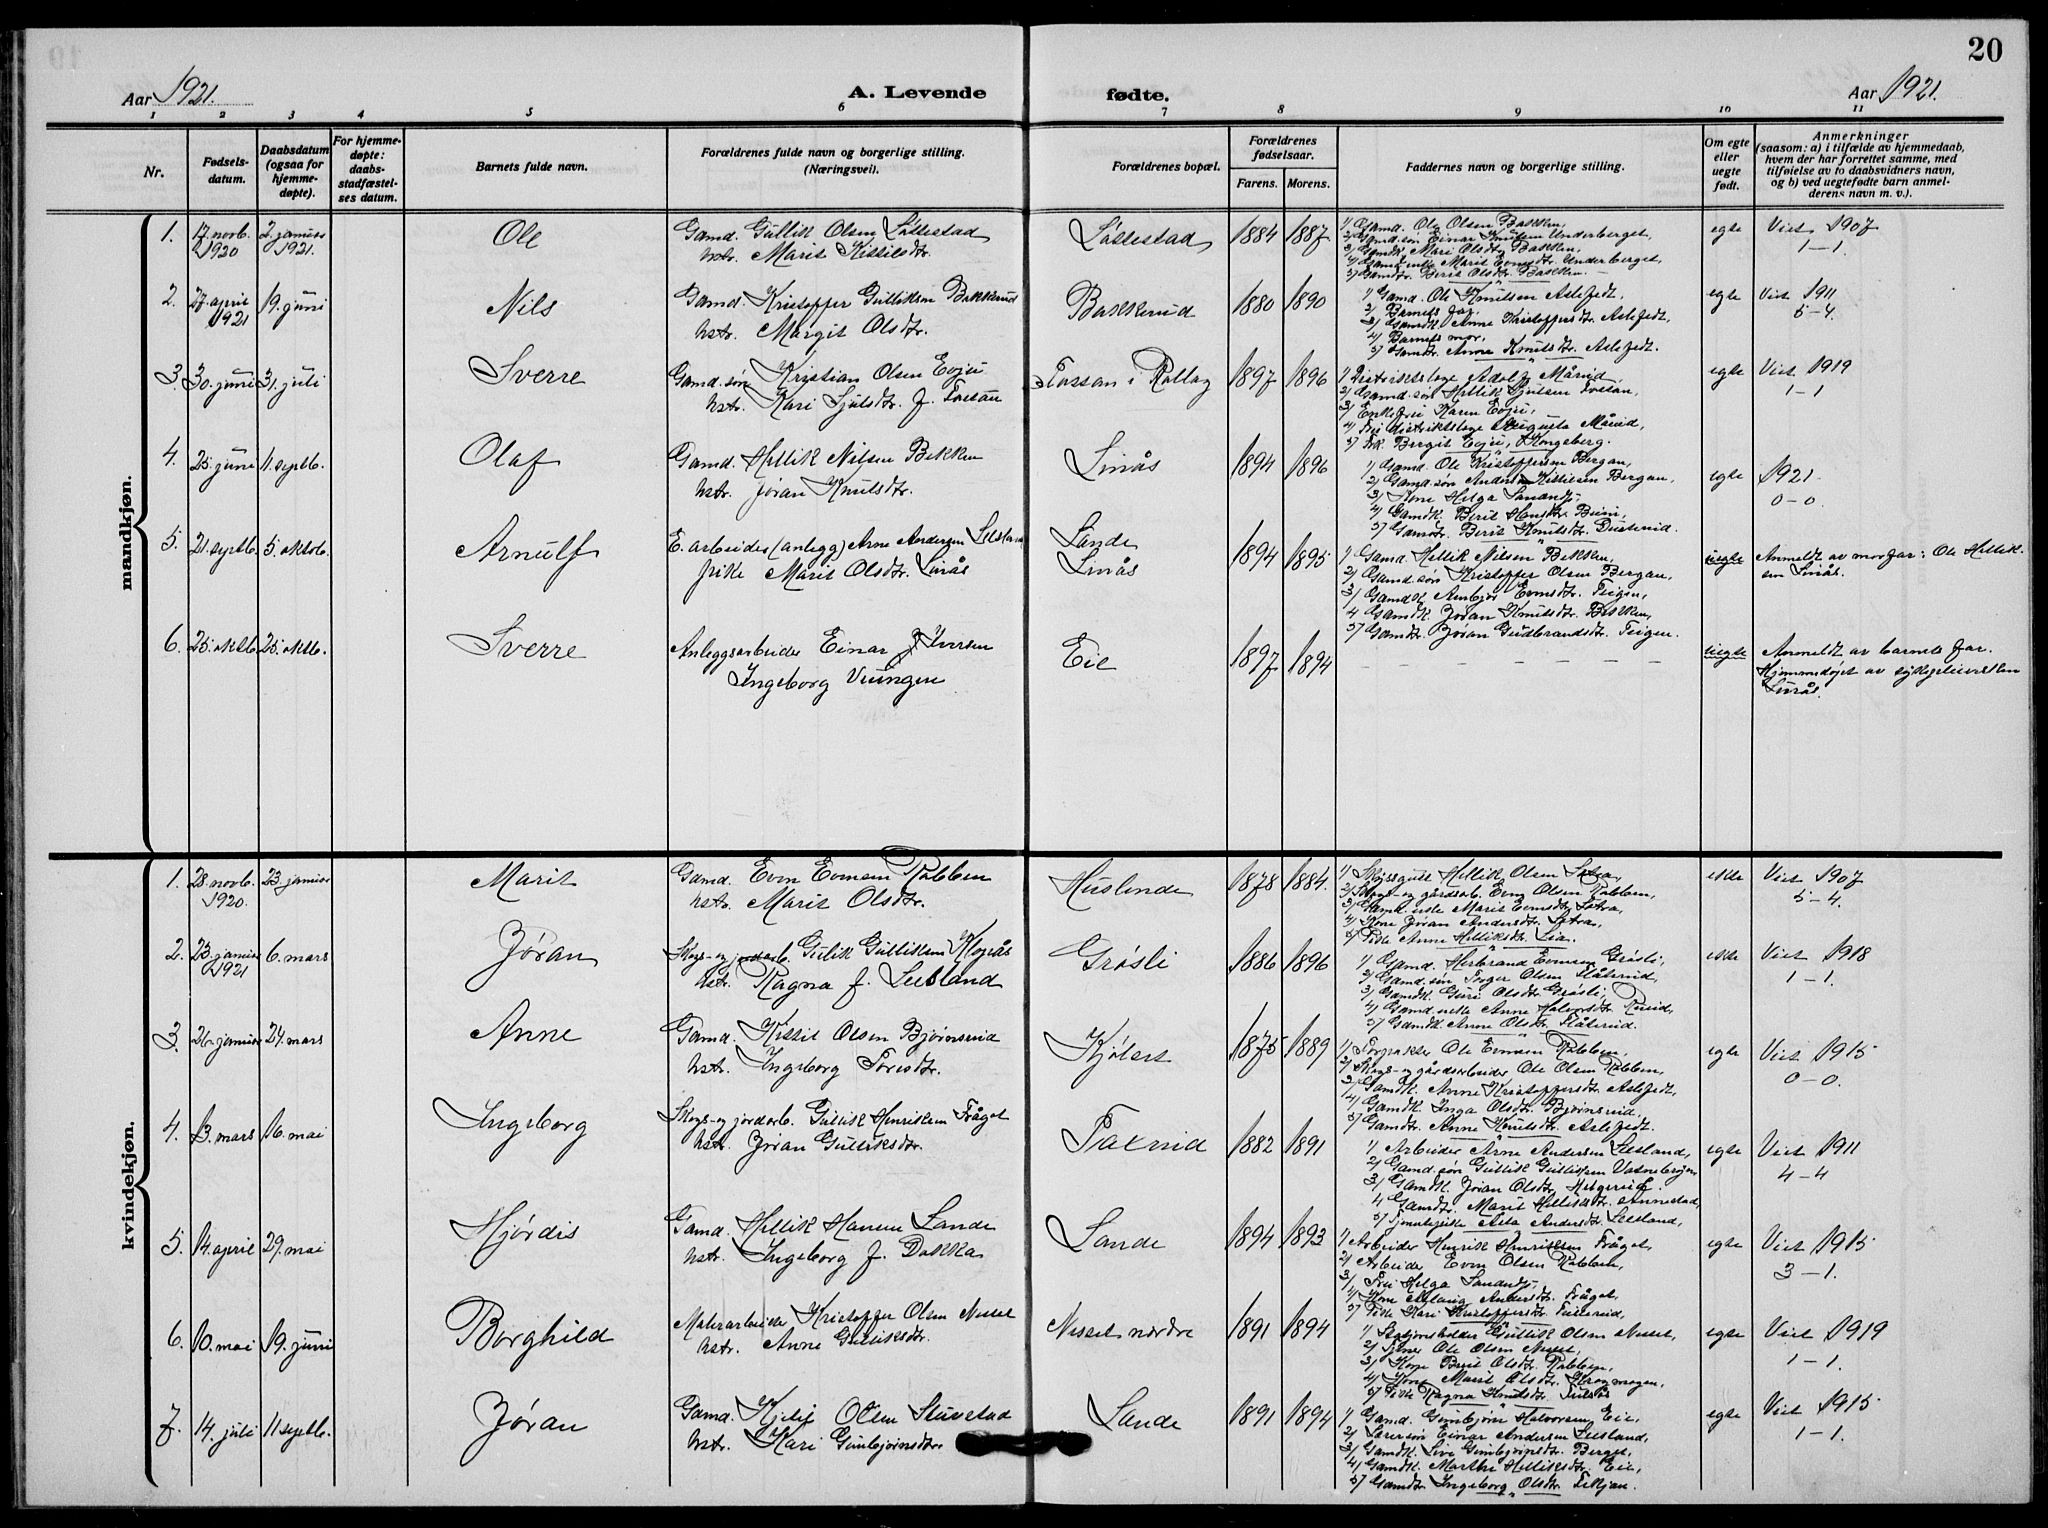 20
Aar 1921.
A. Levende
fødte.
Aar 1921.
1 2 3 4 5 6 7 8 9 10 11
Nr.
Fødsels-
datum.
Daabsdatum
(ogsaa for
hjemme-
døpte).
For hjemme-
døpte:
daabs-
stadfæstel-
ses datum.
Barnets fulde navn.
Forældrenes fulde navn og borgerlige stilling.
(Næringsvei).
Forældrenes bopæl.
Forældrenes
fødselsaar.
Farens. Morens.
Faddernes navn og borgerlige stilling.
Om egte
eller
uegte
født.
Anmerkninger
(saasom: a) i tilfælde av hjemmedaab,
hvem der har forrettet samme, med
tilføielse av to daabsvidners navn,
og b) ved uegtefødte barn anmel-
derens navn m. v.).
mandkjøn.
1. 17. novb. 1920
2. januar 1921.
Ole
Gamd. Gullik Olsen
hstr. Marit Kittilsdtr.
1884 1887
1) Gamd. Ole Olsen Bakken,
2) Gamd.søn Einar Knutsen Underberget,
3) Gamdk. Mari Olsdtr. Bakken,
4) Gamd.enke Marit Evensdtr. Underberget,
5) Gamdtr. Berit Olsdtr. Bakken.
egte
Viet 1907
1–1.
2. 27. april 1921
19. juni
Nils
Gamd. Kristoffer Gulliksen Bakkerud
hstr. Margit Olsdtr.
Bakkerud
1880 1890
1) Gamd. Ole Knutsen Aslefedt,
2) Barnets far,
3) Gamdk. Anne Kristoffersdtr. Aslefedt,
4) Barnets mor,
5) Gamdtr. Anne Knutsdtr. Aslefedt.
egte
Viet 1911
5–4.
3. 30. juni
31. juli
Sverre
Gamd.søn Kristian Olsen Evju
hstr. Kari Gjulsdtr. f. Fossan
Fossan i Rollag
1897 1896
1) Distriktslæge Adolf Mårud
2) Gamd.søn Hellik Gjulsen Fossan,
3) Enkefru Karen Evju,
4) Fru distriktslæge Augusta Mårud,
5) Frk. Birgit Evju, Kongsberg.
egte
Viet 1919
1–1
4. 25. juni
11. septb.
Olaf
Gamd. Hellik Nilsen Bekken
hstr. Jøran Knutsdtr.
Linås
1894 1896
1) Gamd. Ole Kristoffersen Bergan,
2) Gamd.søn Anders Kittilsen Bergan,
3) Kone Helga
4) Gamdk. Berit Hansdtr.
5) Gamdtr. Berit Knutsdtr.
egte
1921.
0–0.
5. 21. septb.
5. oktob.
Arnulf
E. arbeider (anlegg) Arne Andersen
pike Marit Olsdtr. Linås
Lande
Linås
1894 1895
1) Gamd. Hellik Nilsen Bekken,
2) Gamd.søn Kristoffer Olsen Bergan,
3) Gamdk. Ambjør Evensdtr. Teigen,
4 Gamdk. Jøran Knutsdtr. Bekken,
5) Gamdtr. Jøran Gudbrandsdtr. Teigen.
uegte
Anmeldt av morfar: Ole Hellik-
sen Linås.
6. 25. oktb.
25. oktb.
Sverre
Anleggsarbeider Einar Iversen
Ingeborg
Eie
1897 1894
– – – – – –
uegte
Anmeldt av barnets far.
Hjemmedøpt av sykepleiersken
Linås.
kvindekjøn.
1. 28. novb. 1920.
23. januar
Marit
Gamd. Even Evensen Robben
hstr. Marit Olsdtr.
Huslende
1878 1884.
1) Skysgut Hellik Olsen Sætra,
2) Skogs- og gårdsarb. Even Olsen Robben,
3) Gamd.enke Marit Evensdtr. Sætra,
4) Kone Jøran Andersdtr. Sætra,
5) Pike Anne Helliksdtr. Lia.
ekte
Viet 1907
5–4.
2. 23. januar 1921
6. mars
Jøran
Skogs- og jordarb. Gullik Gulliksen
hstr. Ragna f.
Grøsli
1886 1896
1) Gamd. Herbrand Evensen Grøsli,
2) Gamd.søn Torger Olsen Flåterud,
3) Gamdk. Guri Olsdtr. Grøsli,
4) Gamd.enke Anne Halvorsdtr. Ruud,
5) Gamdk. Anne Olsdtr. Flåterud.
ekte
Viet 1918
1–1.
3. 26. januar
24. mars
Anne
Gamd. Kittil Olsen Bjørnsrud
hstr. Ingeborg Toresdtr.
1875 1889
1) Forpakter Ole Evensen Robben,
2) Skogs- og gårdsarbeider Ole Olsen Robben,
3) Gamdk. Anne Kristoffersdtr. Aslefedt,
4) Gamdk. Inga Olsdtr. Bjørnsrud,
5) Gamdtr. Anne Knutsdtr. Aslefedt.
egte
Viet 1915
0–0.
4. 13. mars
16. mai
Ingeborg
Skogs- og jordarb. Gullik Henriksen Fråget
hstr. Jøran Gulliksdtr.
1882 1891
1) Arbeider Arne Andersen
2) Gamd.søn Gullik Gulliksen
3) Gamdk. Jøran Olsdtr.
4 Gamdtr. Marit Helliksdtr.
5) Asta Andersdtr.
egte
Viet 1911
4–4
5. 14. april
29. mai
Hjørdis
Gamd. Hellik Hansen Lande
hstr. Ingeborg f. Dokka
Lande
1894 1893
1) Arbeider Henrik Henriksen Fråget,
2) Arbeider Even Olsen Robben,
3) Fru Helga
4) Kone Aslaug Andersdtr. Fråget,
5) Pike Kari Kristoffersdtr.
egte
Viet 1915.
3–1.
6. 10. mai
19. juni
Borghild
Kristoffer Olsen Nesset
hstr. Anne Gulliksdtr.
Nesset nordre
1891 1894
1) Gullik Olsen Nesset,
2) Ole Olsen Nesset,
3) Kone Berit Olsdtr. Robben,
4) Kone Marit Olsdtr.
5) Pike Ragna Knutsdtr.
egte
Viet 1919
1–1.
7. 14. juli
11 septb.
Jøran
Gamd. Kjetil Olsen
hstr. Kari Gunbjørnsdtr.
Lande
1891 1894
1) Gamd. Gunbjørn Halvorsen Eie,
2) Einar Andersen
3) Gamdk. Live Gunbjørnsdtr. Berget,
4) Gamdk. Marthe Helliksdtr. Eie,
5) Gamdtr. Ingeborg Olsdtr.
egte
Viet 1915.
1–1.